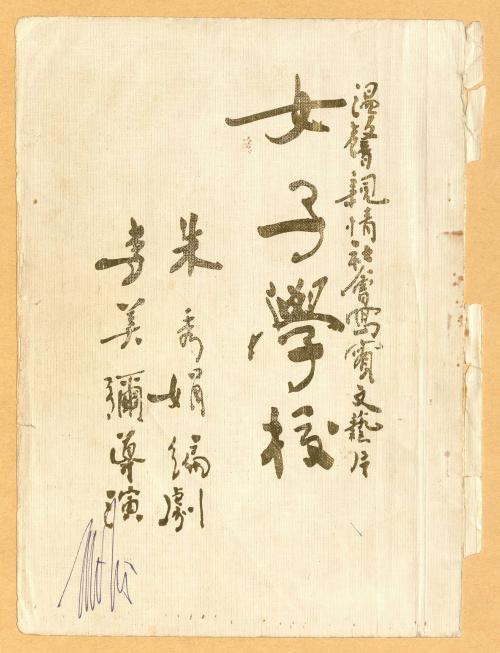 温馨親情社會寫實文藝片
女子學校
朱秀娟編劇
李美彌導演